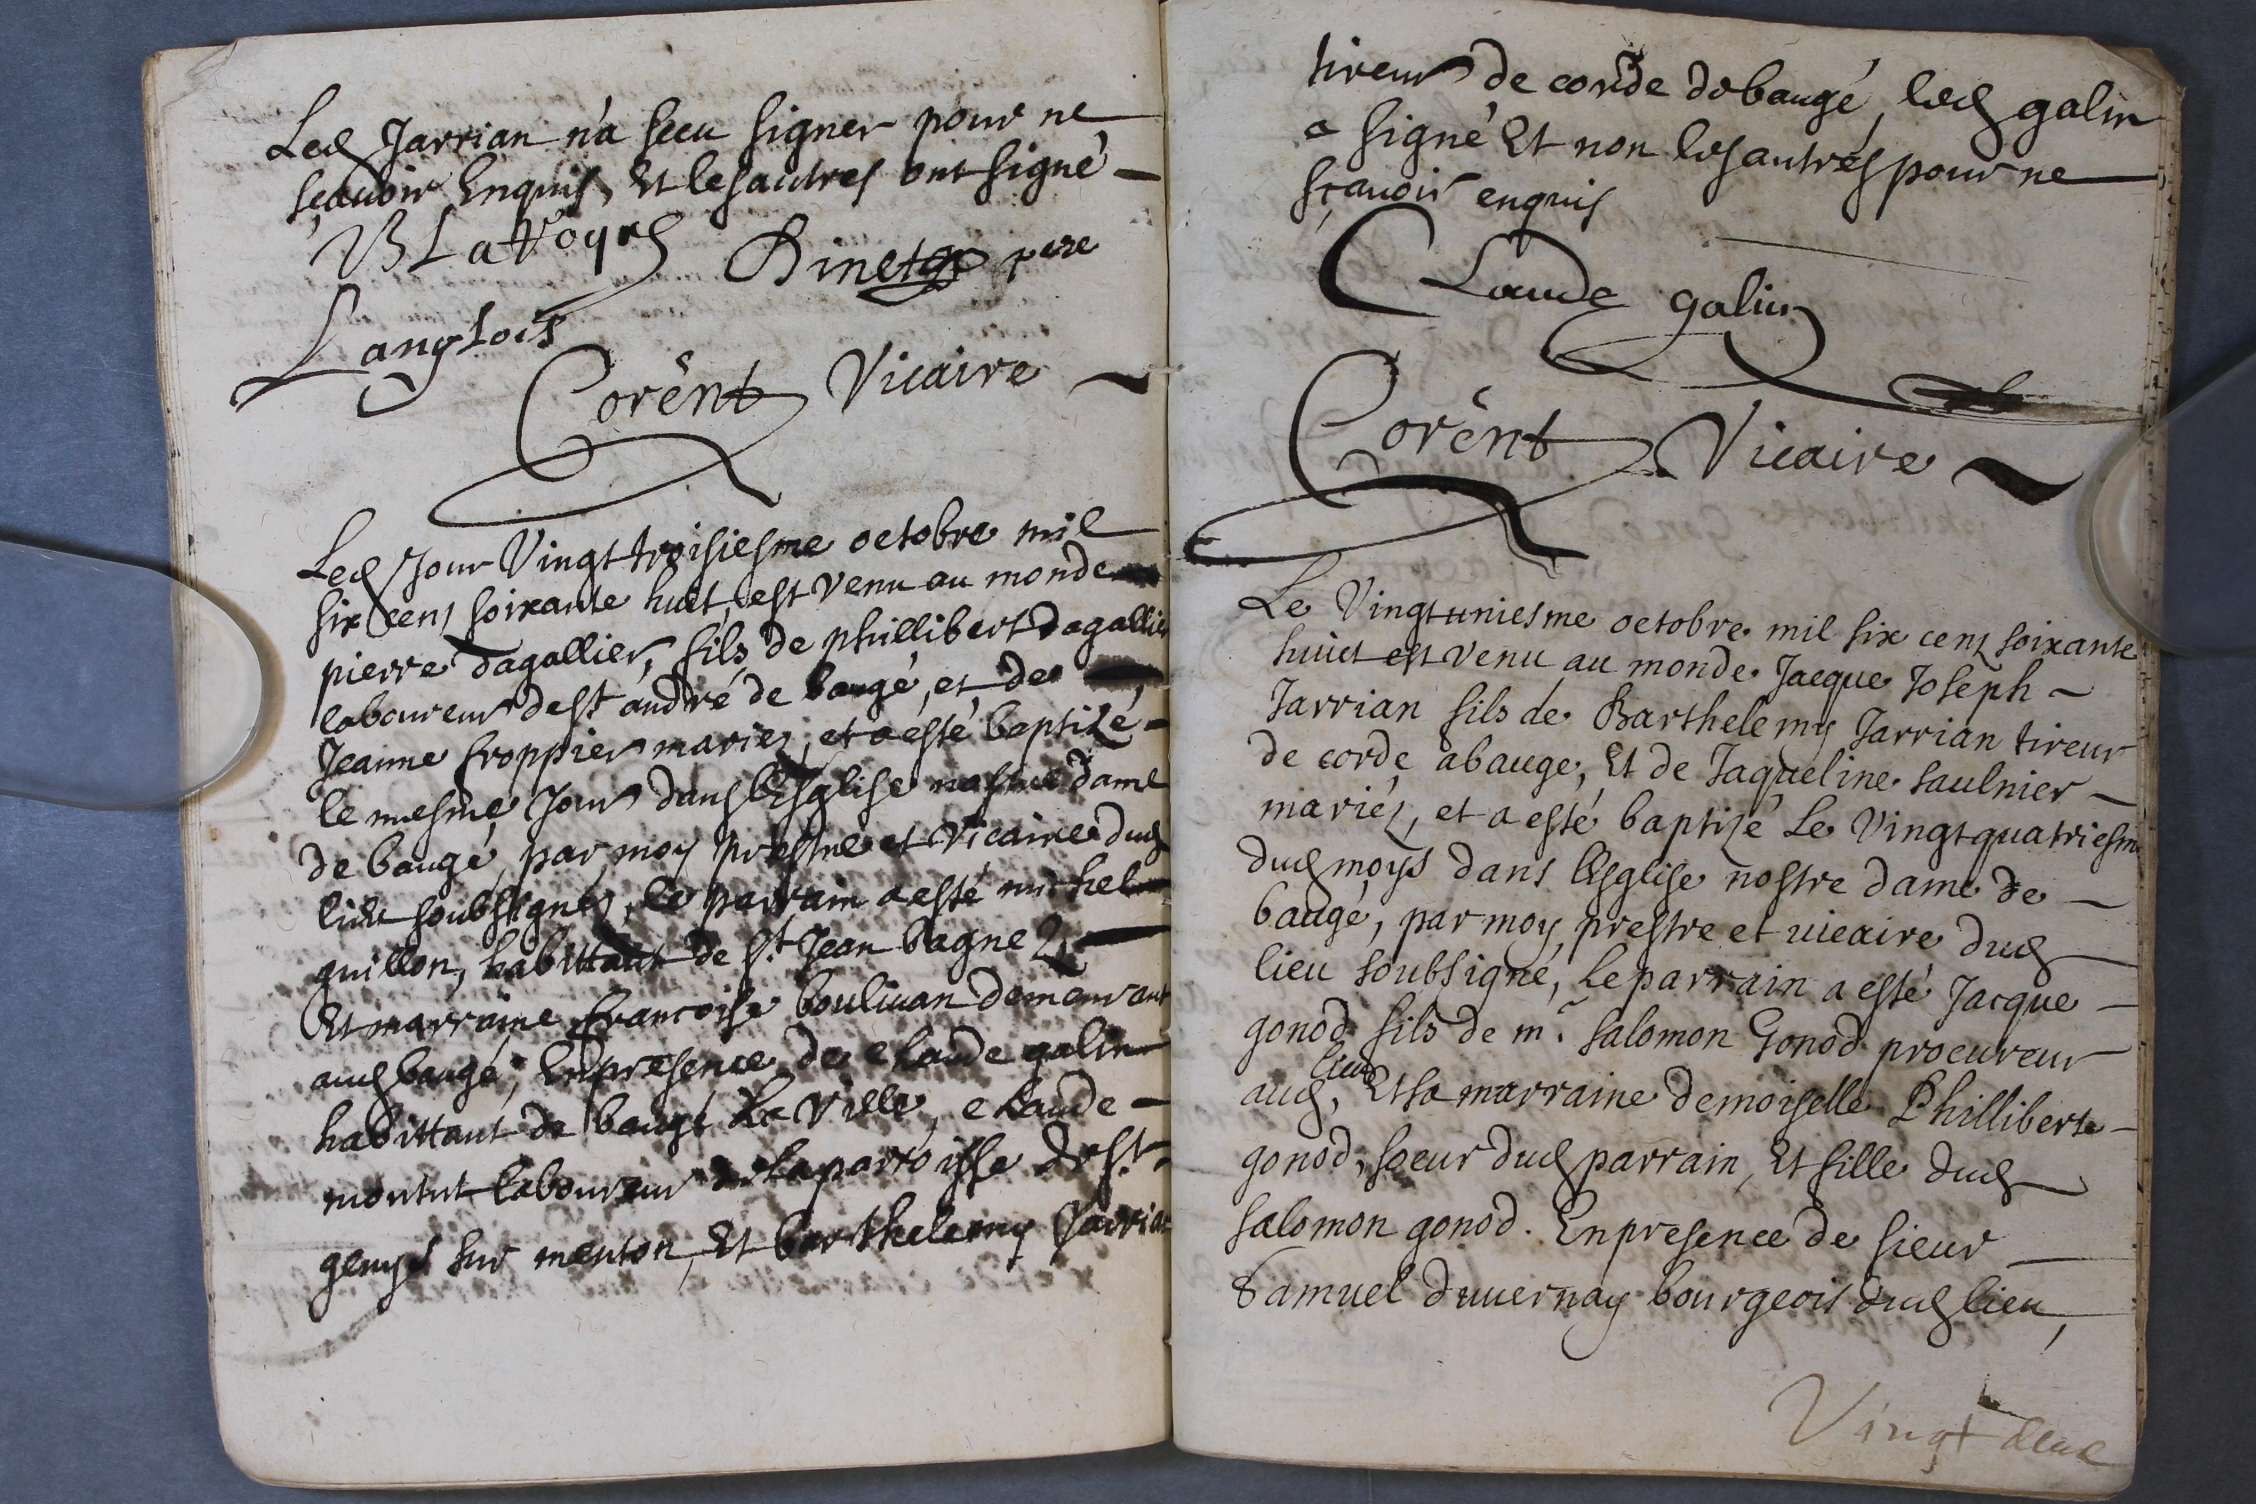 Led Jarrian n'a sceu signer pour ne
sçavoir Enquis, Et les autres ont signé
B Lavoyrs Binetg pere
Langlois
Corent Vicaire
Led Jour Vingt troisiesme octobre mil
six cens soixante huit, est venu au monde
pierre dagallier, fils de phillibert dagallier
laboureur de st andré de baugé, et de
Jeanne froppier mariez, et a esté baptizé
le mesme Jour dans lEsglise nostre dame
de baugé par moy prestre et vicaire dud
lieu soubsigné, le parrain a esté michel
guillon, habittant de St Jean bagne
Et marraine francoise boulivan demeurant
aud baugé, En presence de claude galin
habittant de baugé La Ville, claude
montut laboureur de la parroisse de st
genys sur menton, Et barthelemy Jarrian
tireur de corde de baugé, led galin
a signé Et non les autres pour ne
sçavoir enquis
Claude galin
Corent Vicaire
Le Vingtuniesme octobre mil six cens soixante
huict est venu au monde Jacque Joseph
Jarrian fils de Barthelemy Jarrian tireur
de corde a bauge, Et de Jaqueline saulnier
mariez, et a esté baptizé Le Vingtquatriesme
dud moys dans lEsglise nostre dame de
baugé, par moy prestre et vicaire dud
lieu soubsigné, Le parrain a esté Jacque
gonod fils de mr salomon Gonod procureur
aud lieu, Et sa marraine demoiselle Phillberte
gonod, soeur dud parrain, Et fille dud
salomon gonod. En presence de sieur
Samuel duvernay bourgeois dud lieu,
Vingt deux